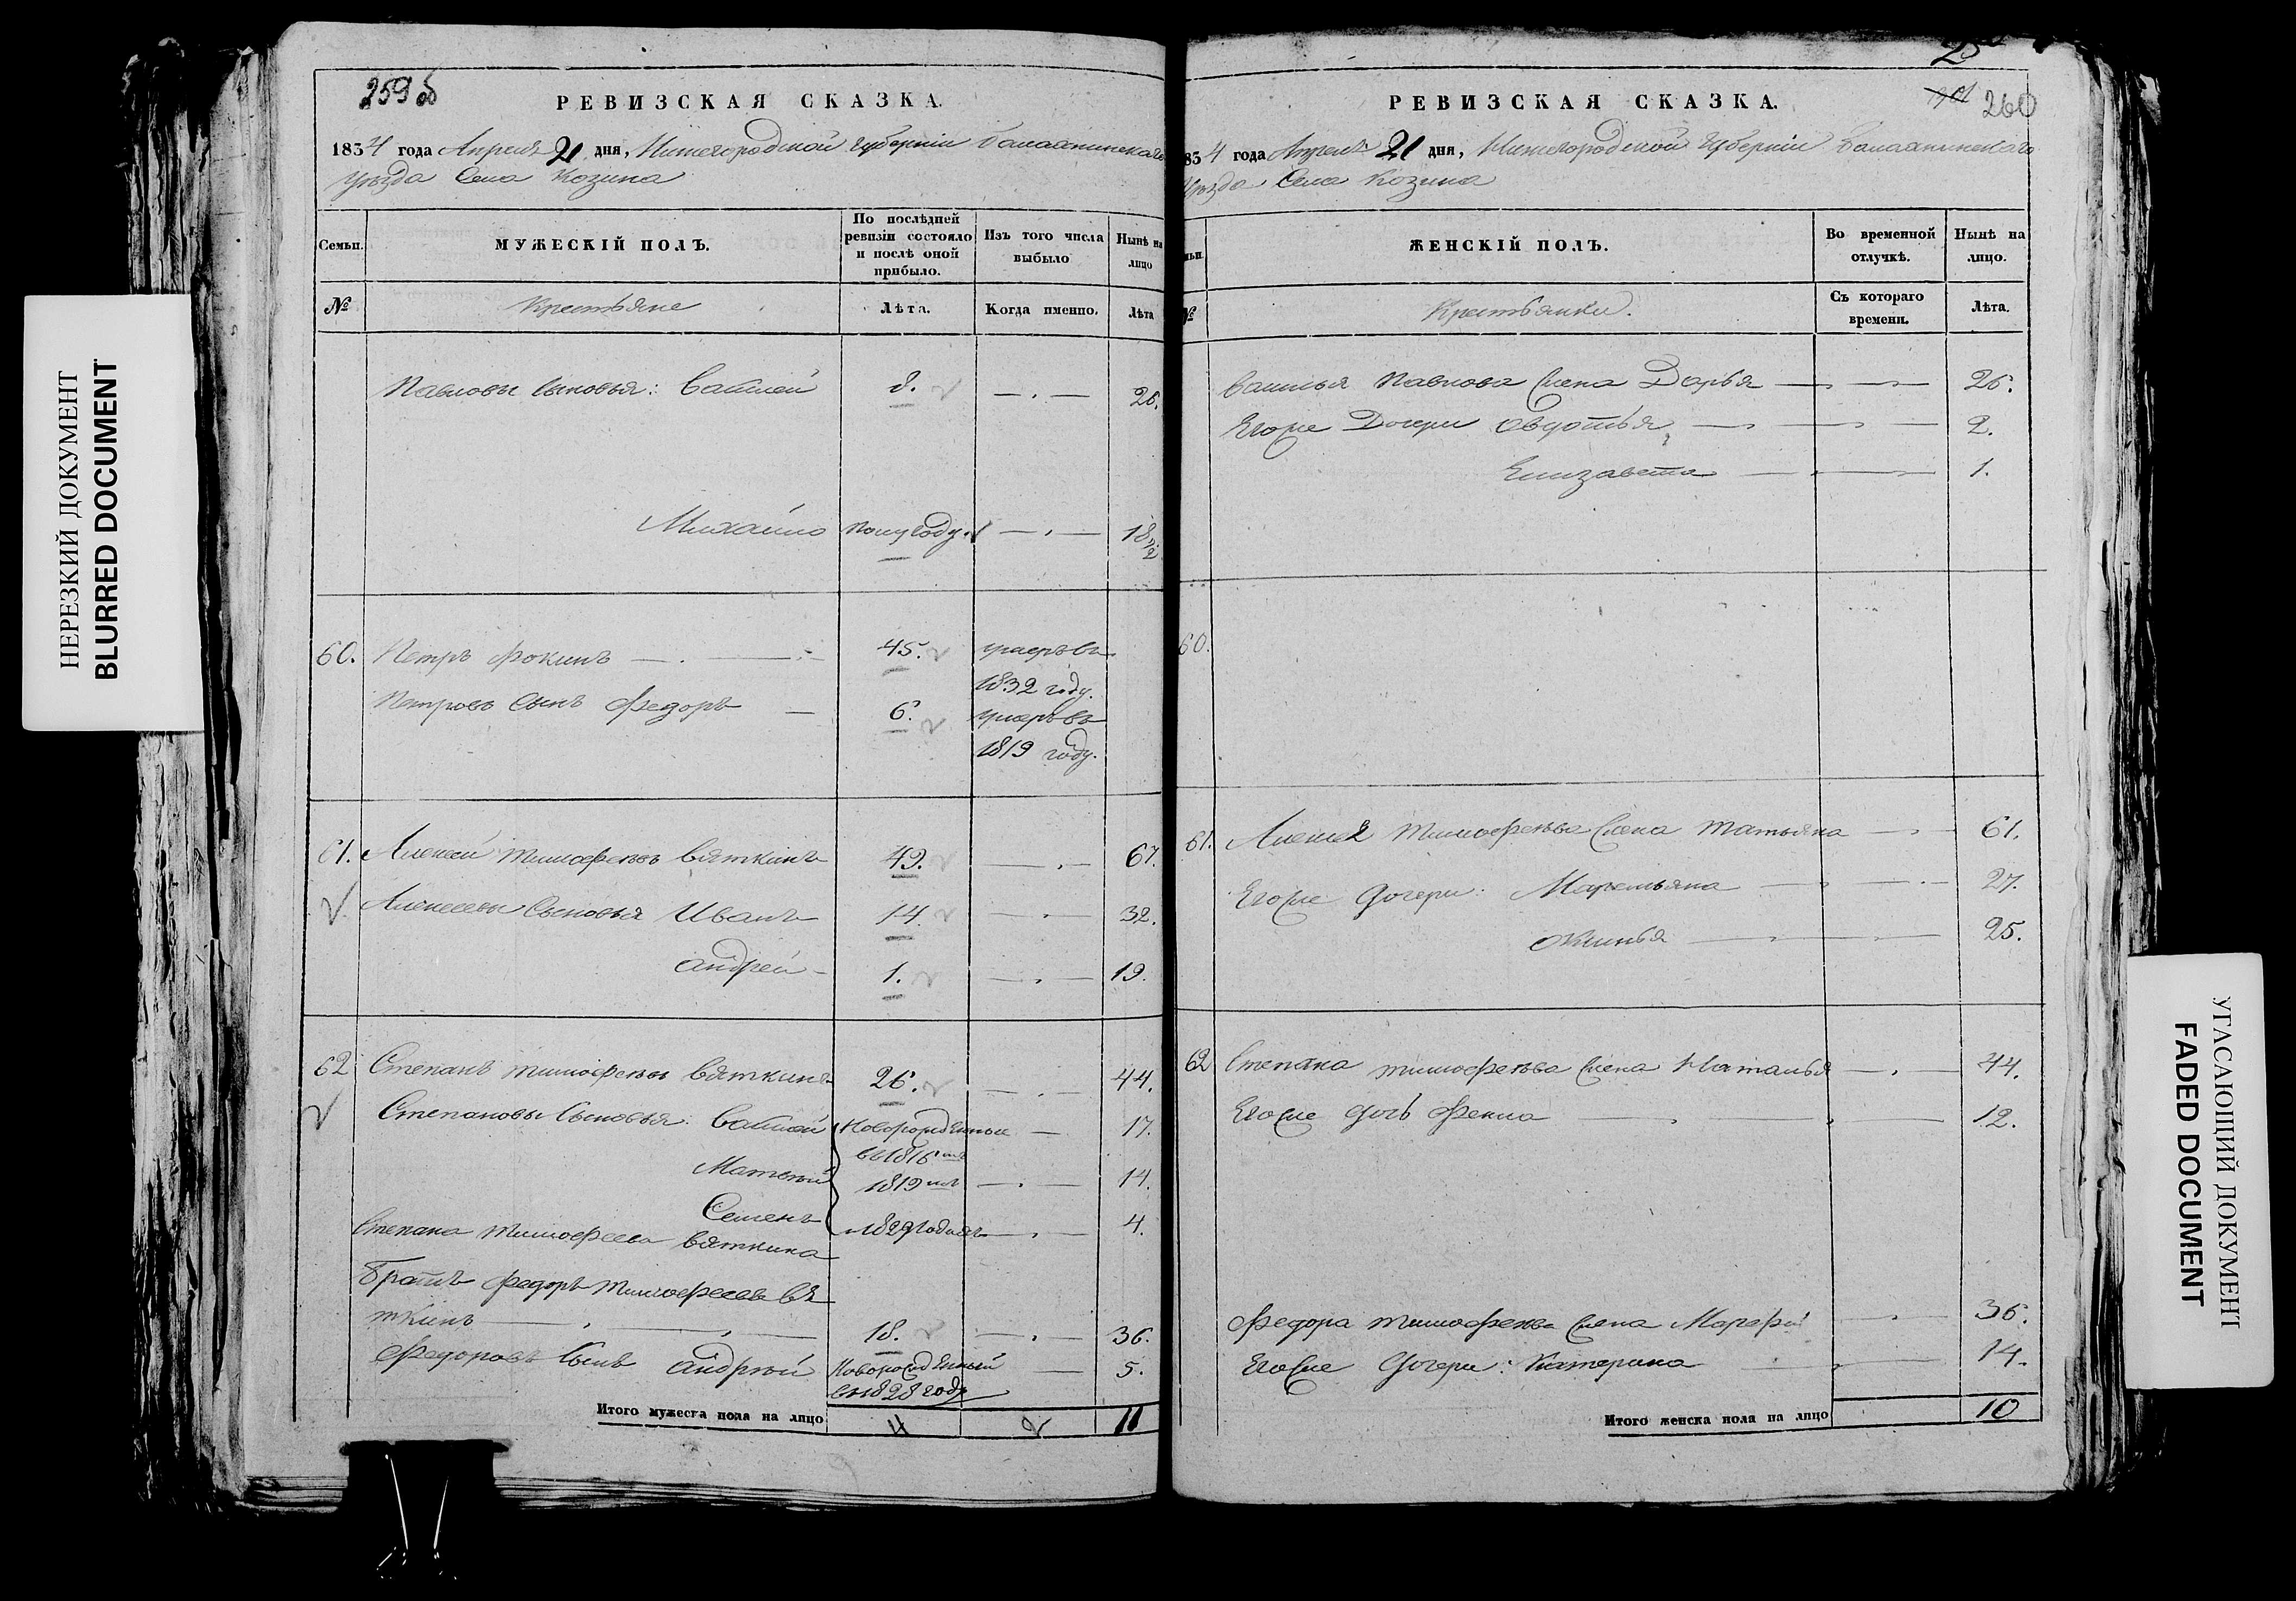 НЕРЕЗКИЙ ДОКУМЕНТ
BLURRED DOCUMENT
259 об
РЕВИЗСКАЯ СКАЗКА.
1834 года Апреля 21 дня, Нижегородской Губернии Балахнинскаго
Уезда Села Козина
Семьи.
МУЖЕСКІЙ ПОЛЪ.
По послѣдней ревизіи состояло и послѣ оной прибыло.
Изъ того числа выбыло
Нынѣ на лицо
№
Крестьяне
Лѣта.
Когда именно.
Лѣта
Павловы Сыновья: Василей 8. 26.
Михайло полугоду. 18 1/2
60. Петръ Фокинъ 45. умеръ въ
1832 году.
Петровъ Сынъ Федоръ 6. умеръ въ
1819 году.
61. Алексей Тимофеевъ Вяткинъ 49. 67.
Алексеевы Сыновья Иванъ 14. 32.
Андрей 1. 19.
62 Степанъ Тимофеевъ Вяткинъ 26. 44.
Степановы Сыновья: Василей Новорожденные 17.
въ 1816мъ
Матвей 1819мъ 14.
Семенъ 1829 годахъ 4.
Степана Тимофеева Вяткина
братъ Федоръ Тимофеевъ Вя
ткинъ 18. 36.
Федоровъ Сынъ Андрей Новорожденный 5.
въ 1828 году
Итого мужеска пола на лицо 11
260
РЕВИЗСКАЯ СКАЗКА.
1834 года Апреля 21 дня, Нижегородской Губернии Балахнинскаго
Уезда Села Козина
ЖЕНСКІЙ ПОЛЪ.
Во временной отлучкѣ.
Нынѣ на лицо.
№
Крестьянки.
Съ котораго времени.
Лѣта.
Василья Павлова Жена Дарья 26.
Егоже Дочери Овдотья 2.
Елизавета 1.
60.
61. Алексея Тимофеева Жена Татьяна 61.
Егоже Дочери: Маремьяна 27.
Окинья 25.
62 Степана Тимофеева Жена Наталья 44.
Егоже дочь Фекла 12.
Федора Тимофеева Жена Марфа 36.
Егоже Дочери: Катерина 14.
Итого женска пола на лицо 10
УГАСАЮЩИЙ ДОКУМЕНТ
FADED DOCUMENT